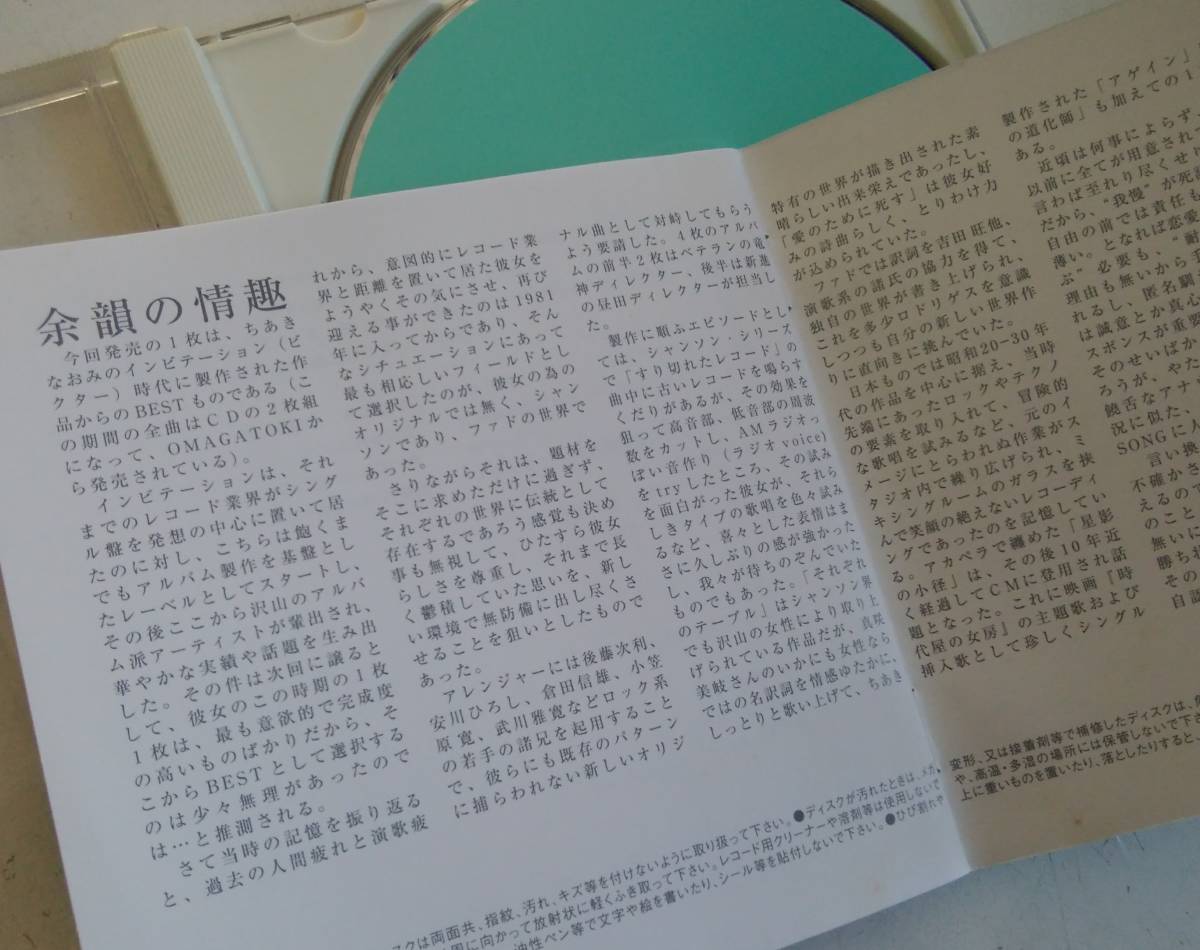 余韻の情趣
今回発売の1枚は、ちあき
なおみのインビテーション(ビ
クター)時代に製作された作
品からのBESTものである(こ
の期間の全曲はCDの2枚組
になって、OMAGATOKIか
ら発売されている)。
インビテーションは、それ
までのレコード業界がシング
ル盤を発想の中心に置いて居
たのに対し、こちらは飽くま
でもアルバム製作を基盤とし
たレーベルとしてスタートし、
その後ここから沢山のアルバ
ム派アーティストが輩出され、
華やかな実績や話題を生み出
した。その件は次回に譲ると
して、彼女のこの時期の1枚
1枚は、最も意欲的で完成度
の高いものばかりだから、そ
こからBESTとして選択する
のは少々無理があったので
は…と推測される。
さて当時の記憶を振り返る
と、過去の人間疲れと演歌疲
れから、意図的にレコード業
界と距離を置いて居た彼女を
ようやくその気にさせ、再び
迎える事ができたのは1981
年に入ってからであり、そん
なシチュエーションにあって
最も相応しいフィールドとし
て選択したのが、彼女の為の
オリジナルでは無く、シャン
ソンであり、ファドの世界で
あった。
さりながらそれは、題材を
そこに求めただけに過ぎず、
それぞれの世界に伝統として
存在するであろう感覚も決め
事も無視して、ひたすら彼女
らしさを尊重し、それまで長
く鬱積していた思いを、新し
い環境で無防備に出し尽くさ
せることを狙いとしたもので
あった。
アレンジャーには後藤次利、
安川ひろし、倉田信雄、小笠
原寛、武川雅寛などロック系
の若手の諸兄を起用すること
で、彼らにも既存のパターン
に捕らわれない新しいオリジ
ナル曲として対峙してもらう
よう要請した。4枚のアルバ
ムの前半2枚はベテランの竜
神ディレクター、後半は新進
の昼田ディレクターが担当し
た。
製作に順ふエピソードとし
ては、シャンソン・シリーズ
で「すり切れたレコード」の
曲中に古いレコードを鳴らす
くだりがあるが、その効果を
狙って高音部、低音部の周波
数をカットし、AMラジオっ
ぽい音作り(ラジオvoice)
をtryしたところ、その試み
を面白がった彼女が、それら
しきタイプの歌唱を色々試み
るなど、喜々とした表情はま
さに久しぶりの感が強かった
し、我々が待ちのぞんでいた
ものでもあった。「それぞれ
のテーブル」はシャンソン界
でも沢山の女性により取り上
げられている作品だが、真咲
美岐さんのいかにも女性なら
ではの名訳詞を情感ゆたかに、
しっとりと歌い上げて、ちあき
特有の世界が描き出された素
晴らしい出来栄えであったし、
「愛のために死す」は彼女好
みの詩曲らしく、とりわけ力
が込められていた。
ファドでは訳詞を吉田旺他、
演歌系の諸氏の協力を得て、
独自の世界が書き上げられ、
これを多少ロドリゲスを意識
しつつも自分の新しい世界作
りに直向きに挑んでいた。
日本ものでは昭和20-30年
代の作品を中心に据え、当時
先端にあったロックやテクノ
の要素を取り入れて、冒険的
な歌唱を試みるなど、元のイ
メージにとらわれぬ作業がス
タジオ内で繰り広げられ、ミ
キシングルームのガラスを挟
んで笑顔の絶えないレコーディ
ングであったのを記憶してい
る。アカペラで纏めた「星影
の小径」は、その後10年近
く経過してCMに登用され話
題となった。これに映画『時
代屋の女房』の主題歌および
挿入歌として珍しくシングル
製作された「アゲイン」
の道化師」も加えての1
ある。
近頃は何事によらず、
以前に全てが用意され
言わば至れり尽くせり
だから、“我慢”が死
自由の前では責任も
薄い。
となれば恋愛
ぶ”必要も、“耐
理由も無いから手
れるし、匿名
は誠意とか真心
スポンスが重要
そのせいばか
ろうが、やた
饒舌なアナ
況に似た、
SONGに人
言い換
不確かさ
えるので
のこと
無いに
勝ち
その
自
スクは両面共、指紋、汚れ、キズ等を付けないように取り扱って下さい。●ディスクが汚れたときは、メガ
周に向かって放射状に軽くふき取って下さい。レコード用クリーナーや溶剤等は使用しないで
油性ペン等で文字や絵を書いたり、シール等を貼付しないで下さい。●ひび割れや
変形、又は接着剤等で補修したディスクは、
や、高温・多湿の場所には保管しないで下さ
上に重いものを置いたり、落としたりすると、